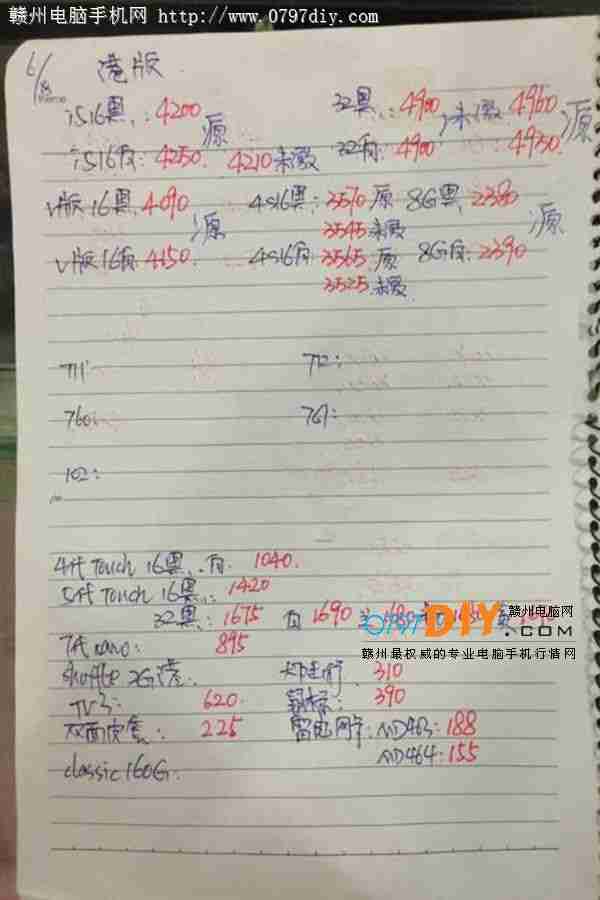 赣州电脑手机网 http://www.0797diy.com
6/8 港版
i516黑: 4200 源 32黑: 4900 未激 4960 源
i516白: 4250 4210未激 32白: 4900 4930
V版16黑 4090 源 4s16黑: 3570 原 8G黑 2380 源
3545 未激
V版16白 4150 4s16白: 3565 原 8G白: 2390
3525 未激
711: 712:
760: 761:
102:
4代 Touch 16黑、白 1040
5代 Touch 16黑: 1420
32黑: 1675 白 1690
7代 nano: 895
shuffle 2G港: 310
TV3: 620 鼠标: 390
双面皮套: 225 雷电网卡: MD463: 188
MD464: 155
classic 160G:
0797DIY.COM 赣州电脑网
赣州最权威的专业电脑手机行情网